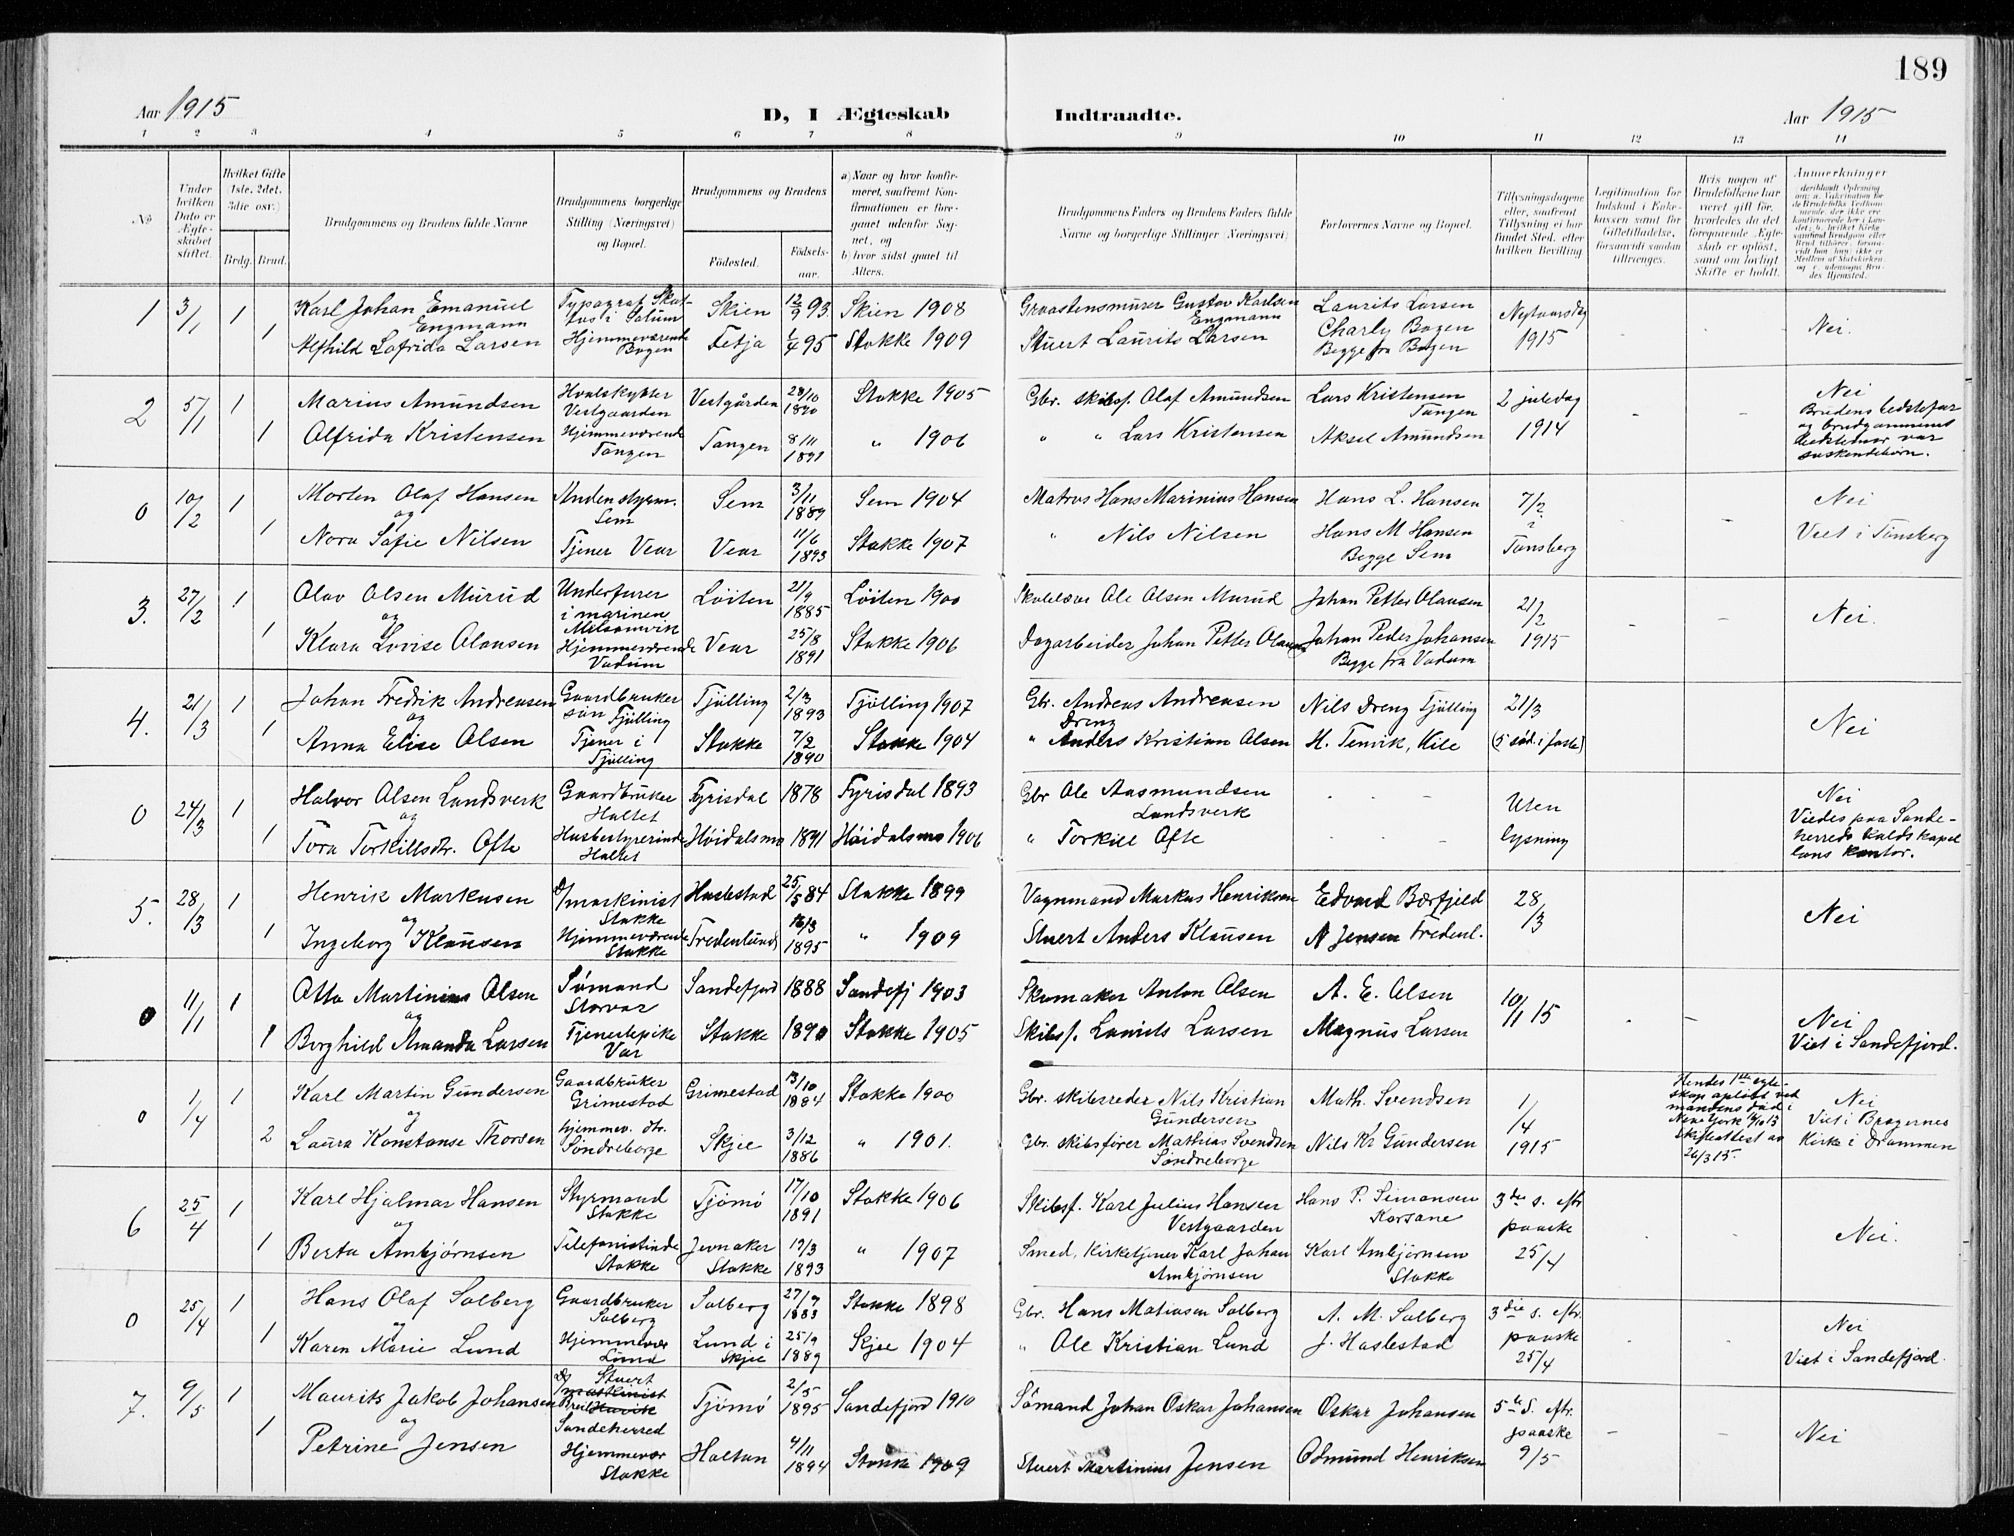 189
Aar 1915
D, I Ægteskab Indtraadte.
Aar 1915
1 2 3 4 5 6 7 8 9 10 11 12 13 14
№
Under hvilken Dato er Ægteskabet stiftet.
Hvilket Gifte (1ste, 2det, 3die osv.)
Brdg. Brud.
Brudgommens og Brudens fulde Navne
Brudgommens borgerlige Stilling (Næringsvei) og Bopæl.
Brudgommens og Brudens
Fødested.
Fødselsaar.
a) Naar og hvor konfirmeret, saafremt Konfirmationen er foregaaet udenfor Sognet, og
b) hvor sidst gaaet til Alters.
Brudgommens Faders og Brudens Faders fulde Navne og borgerlige Stillinger (Næringsvei)
Forlovernes Navne og Bopæl.
Tillysningsdagene eller, saafremt Tillysning ei har fundet Sted, efter hvilken Bevilling
Legitimation for Indskud i Enkekassen samt for Giftetilladelse, forsaavidt saadan tiltrænges.
Hvis nogen af Brudefolkene har været gift før, hvorledes da det foregaaende Ægteskab er opløst, samt om lovligt Skifte er holdt.
Anmerkninger
1 3/1 1 Karl Johan Emanuel Engmann Typograf Skien 12/9 93 Skien 1908 Graastensmurer Gustav Karlsen Engmann Laurits Larsen Nytaarsdag 1915 - - Nei.
1 Alfhild Lofrida Larsen Hjemmeværende Bogen Fetja 1/4 95 Stokke 1909 Stuert Laurits Larsen Charly Bogen Begge fra Bogen
2 5/1 1 Marius Amundsen Hvalskytter Vestgaarden Vestgården 28/10 1890 Stokke 1905 Gbr. skibsf. Olaf Amundsen Lars Kristensen Tangen 2 juledag 1914 - - Nei
1 Alfrida Kristensen Hjemmeværende Tangen Tangen 8/11 1891 " 1906 " " Lars Kristensen Aksel Amundsen
Brudens bedstefar og brudgommens bedstemor var søskendebørn.
0 10/2 1 Morten Olaf Hansen og Sem Sem 3/11 1889 Sem 1904 Matros Hans Marinius Hansen Hans L. Hansen 7/2 i Tønsberg - Nei
1 Nora Sofie Nilsen Tjener Vear Vear 11/6 1893 Stokke 1907 " Nils Nilsen Hans M Hansen Begge Sem Viet i Tønsberg
3. 27/2 1 Olav Olsen Murud og Underfurer i marinen Melsomvik Löiten 21/9 1885 Löiten 1900 Ole Olsen Murud Johan Petter Olausen 21/2 1915 - - Nei.
1 Klara Lovise Olausen Hjemmeværende Vadum Vear 25/8 1891 Stokke 1906 Dagarbeider Johan Petter Olausen Johan Peder Johansen Begge fra Vadum
4. 21/3 1 Johan Fredrik Andreasen og Gaardbruker søn Tjølling Tjölling 2/3 1893 Tjölling 1907 Gbr. Andreas Andreasen Dreng Nils Dreng Tjölling 21/3 (5 sød. i faste) Nei
1 Anna Elise Olsen Tjener i Tjølling Stokke 7/2 1890 Stokke 1904 " Anders Kristian Olsen H. Tenvik, Kile
0 24/3 1 Halvor Olsen Landsverk og Gaardbruker Haltet Fyrisdal 1878 Fyrisdal 1893 Gbr Ole Aasmundsen Landsverk - - Uten lysning Nei
1 Tora Torkillsdr. Ofte Husbestyrerinde Haltet Höidalsmo 1891 Höidalsmo 1906 " Torkill Ofte - -
Viedes paa Sandeherreds kaldskapellans kontor.
5. 28/3 1 Henrik Markusen og maskinist Stokke Haslestad 25/5 84 Stokke 1899 Vognmand Markus Henriksen Edvard Bærfjeld 28/3 Nei
1 Ingeborg Klausen Hjemmeværende Stokke Fredenlund 16/3 1895 " 1909 Stuert Anders Klausen N Jensen Fredenl.
0 11/1 1 Otto Martinius Olsen og Sømand Storvar Sandefjord 1888 Sandefj 1903 Skomaker Anton Olsen A. E. Olsen 10/1 15 - - Nei
1 Borghild Amanda Larsen Tjenestepike Var Stokke 1890 Stokke 1905 Skibsf. Laurits Larsen Magnus Larsen Viet i Sandefjord.
0 1/4 1 Karl Martin Gundersen og Gaardbruker Grimestad Grimestad 13/10 1884 Stokke 1900 Gbr. skibsreder Nils Kristian Gundersen Math. Svendsen 1/4 1915 Nei
2 Laura Konstanse Thorsen hjemmev. dtr. Søndreborge Skjee 3/12 1886 " 1901. Gbr. skibsfører Mathias Svendsen Søndreborge Nils Kr Gundersen
Hendes 1ste egteskap opløst ved mandens død i New York Skifteattest av 26/3 15.
Viet i Bragernes Kirke i Drammen
6 25/4 1 Karl Hjalmar Hansen og Styrmand Stokke Tjømø 17/10 1891 Stokke 1906 Skibsf. Karl Julius Hansen Vestgaarden Hans P. Simonsen Korsane 3die s. eftr. paaske 25/4 - - Nei.
1 Berta Ambjørnsen Telefonistinde Stokke Jevnaker Stokke 19/3 1893 " 1907 Smed, Kirketjener Karl Johan Ambjørnsen Karl Ambjørnsen Stokke
0 25/4 1 Hans Olaf Solberg og Gaardbruker Solberg Solberg 27/9 1883 Stokke 1898 Gbr. Hans Matiasen Solberg A. M. Solberg 3die s. eftr. paaske 25/4 - - Nei
1 Karen Marie Lund Hjemmevær Lund Lund i Skjee 25/9 1889 Skjee 1904 " Ole Kristian Lund J. Haslestad Viet i Sandefjord.
7. 9/5 1 Maurits Jakob Johansen og Stuert maskinist Sandeherred Tjömö 2/5 1895 Sandefjord 1910 Sömand Johan Oskar Johansen Oskar Johansen 5te S. eftr. paaske 9/5 - - Nei
1 Petrine Jensen Hjemmevær Stokke Holtan 4/11 1894 Stokke 1909 Stuert Martinius Jensen Odmund Henriksen